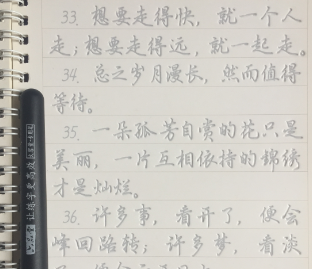 33. 想要走得快，就一个人
走；想要走得远，就一起走。
34. 总之岁月漫长，然而值得
等待。
35. 一朵孤芳自赏的花只是
美丽，一片互相依持的锦绣
才是灿烂。
36. 许多事，看开了，便会
峰回路转；许多梦，看淡
让练字更高效